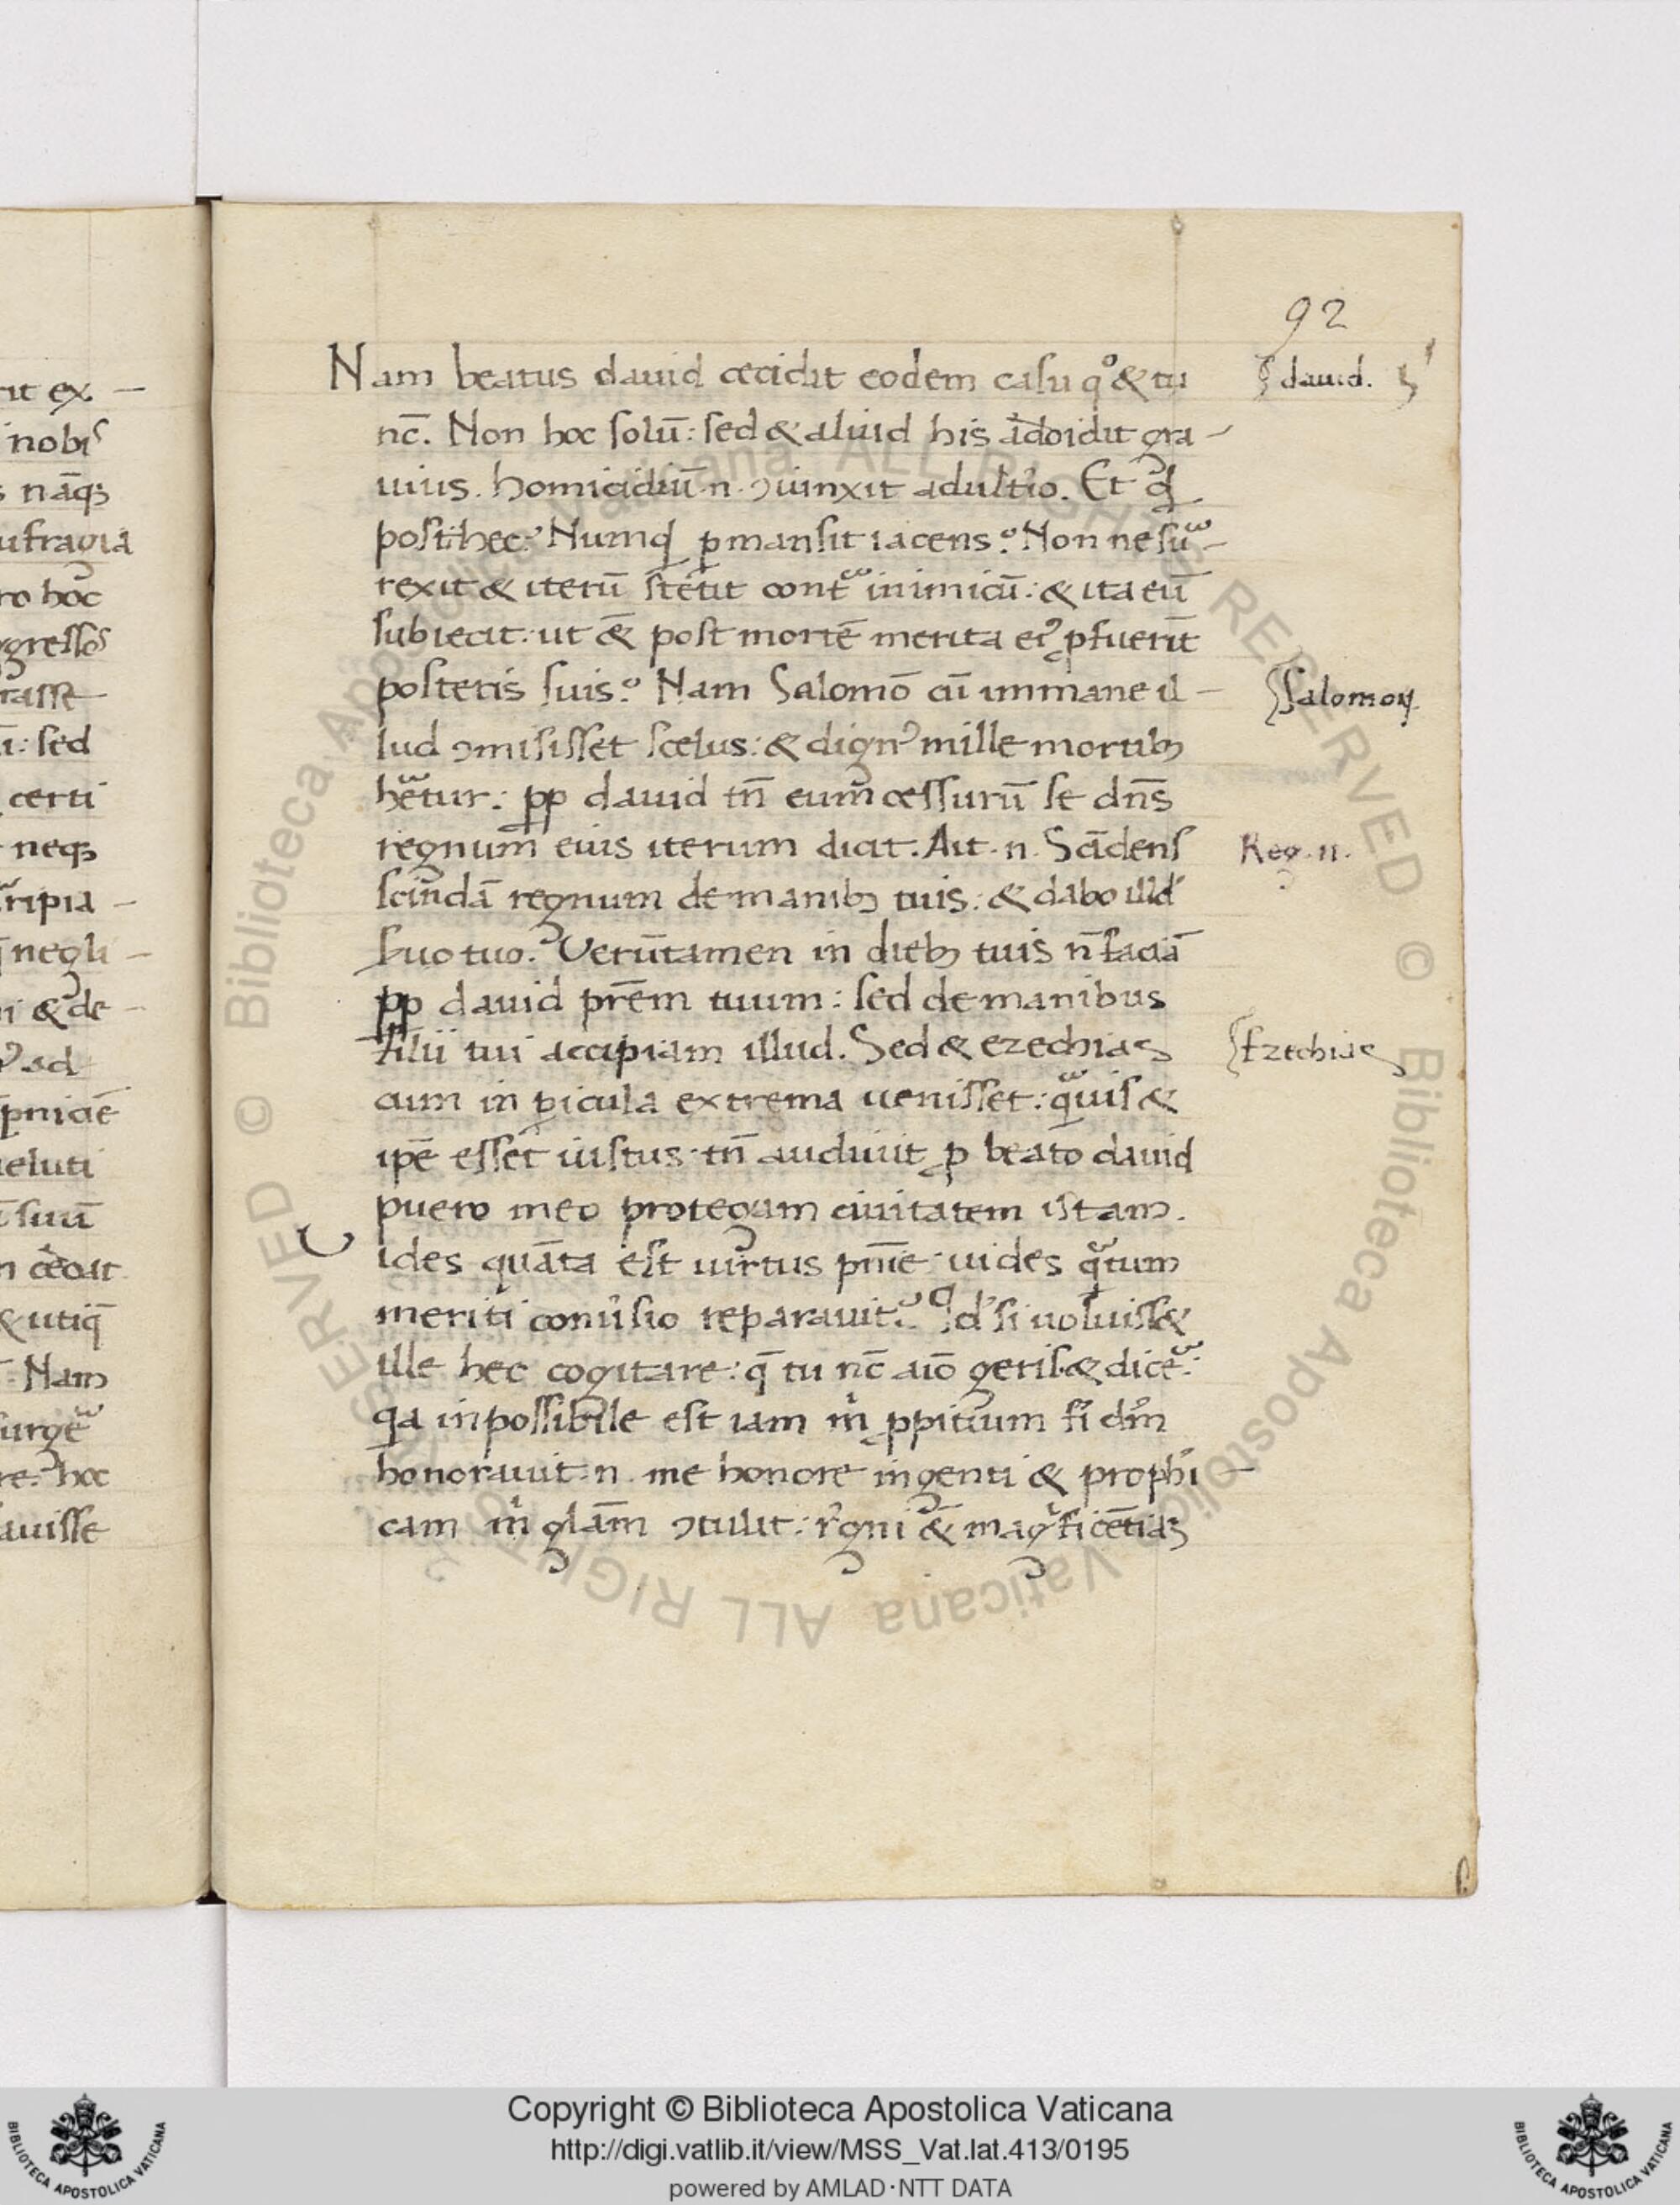 92
rit ex –
nobis
s nāqꝫ
ufragia
ro hoc
gressos
rasse
ı: sed
certi
neqꝫ
ripia –
negli –
ni & de –
ad
ꝑniciē
ueluti
suū
cecat
& utiqꝫ
Nam
urge
re: hoc
auisse
Nam beatus dauid cecidit eodem casu qͦ & tu
nc̄. Non hoc solū: sed & aliud his addidit gra –
uius. homicidiū .n. ꝯiuinxit adultio. Et qd
posthec? Numqd ꝑmansit iacens? Non ne su –
rexit & iterū stetit contͣ inimicū: & ita eū
subiecit: ut &̄ post mortē merita eiꝰ ꝓfuerīt
posteris suis? Nam Salomō cū immane il –
lud ꝯmisisset scelus: & dignꝰ mille mortibꝫ
het̄ur: ꝓp dauid tn̄ eum cessurū se dn̄s
regnum eius iterum dicit. Ait .n. Scīdens
scindā regnum de manibꝫ tuis: & dabo illd
suo tuo. Uerūtamen in diebꝫ tuis n̄ faciā
ꝓp dauid prēm tuum: sed de manibus
filii tui accipiam illud. Sed & ezechias
cum in ꝑicula extrema uenisset: qͣuis &
ip̄e esset iustus tn̄ audiuit ꝓ beato dauid
puero meo protegam ciuitatem istam.
Uides quāta est uirtus pn̄ie: uides qͣtum
meriti conuisio reparauit? Qd si uoluiss&
ille hec cogitare: q̄ tu nc̄ aīo geris & dicē:
qa inpossibile est iam m̄ ꝓpitium fi dm̄
honorauit .n. me honore ingenti & prophi –
cam m glām ꝯtulit: rgni &̄ magficētiaꝫ
dauid.
Salomon
Reg. II.
Ezechias
© Biblioteca Apostolica Vaticana ALL RIGHTS RESERVED © Biblioteca Apostolica Vaticana ALL RIGHTS RESERVED
Copyright © Biblioteca Apostolica Vaticana
http://digi.vatlib.it/view/MSS_Vat.lat.413/0195
powered by AMLAD·NTT DATA
BIBLIOTECA APOSTOLICA VATICANA
BIBLIOTECA APOSTOLICA VATICANA